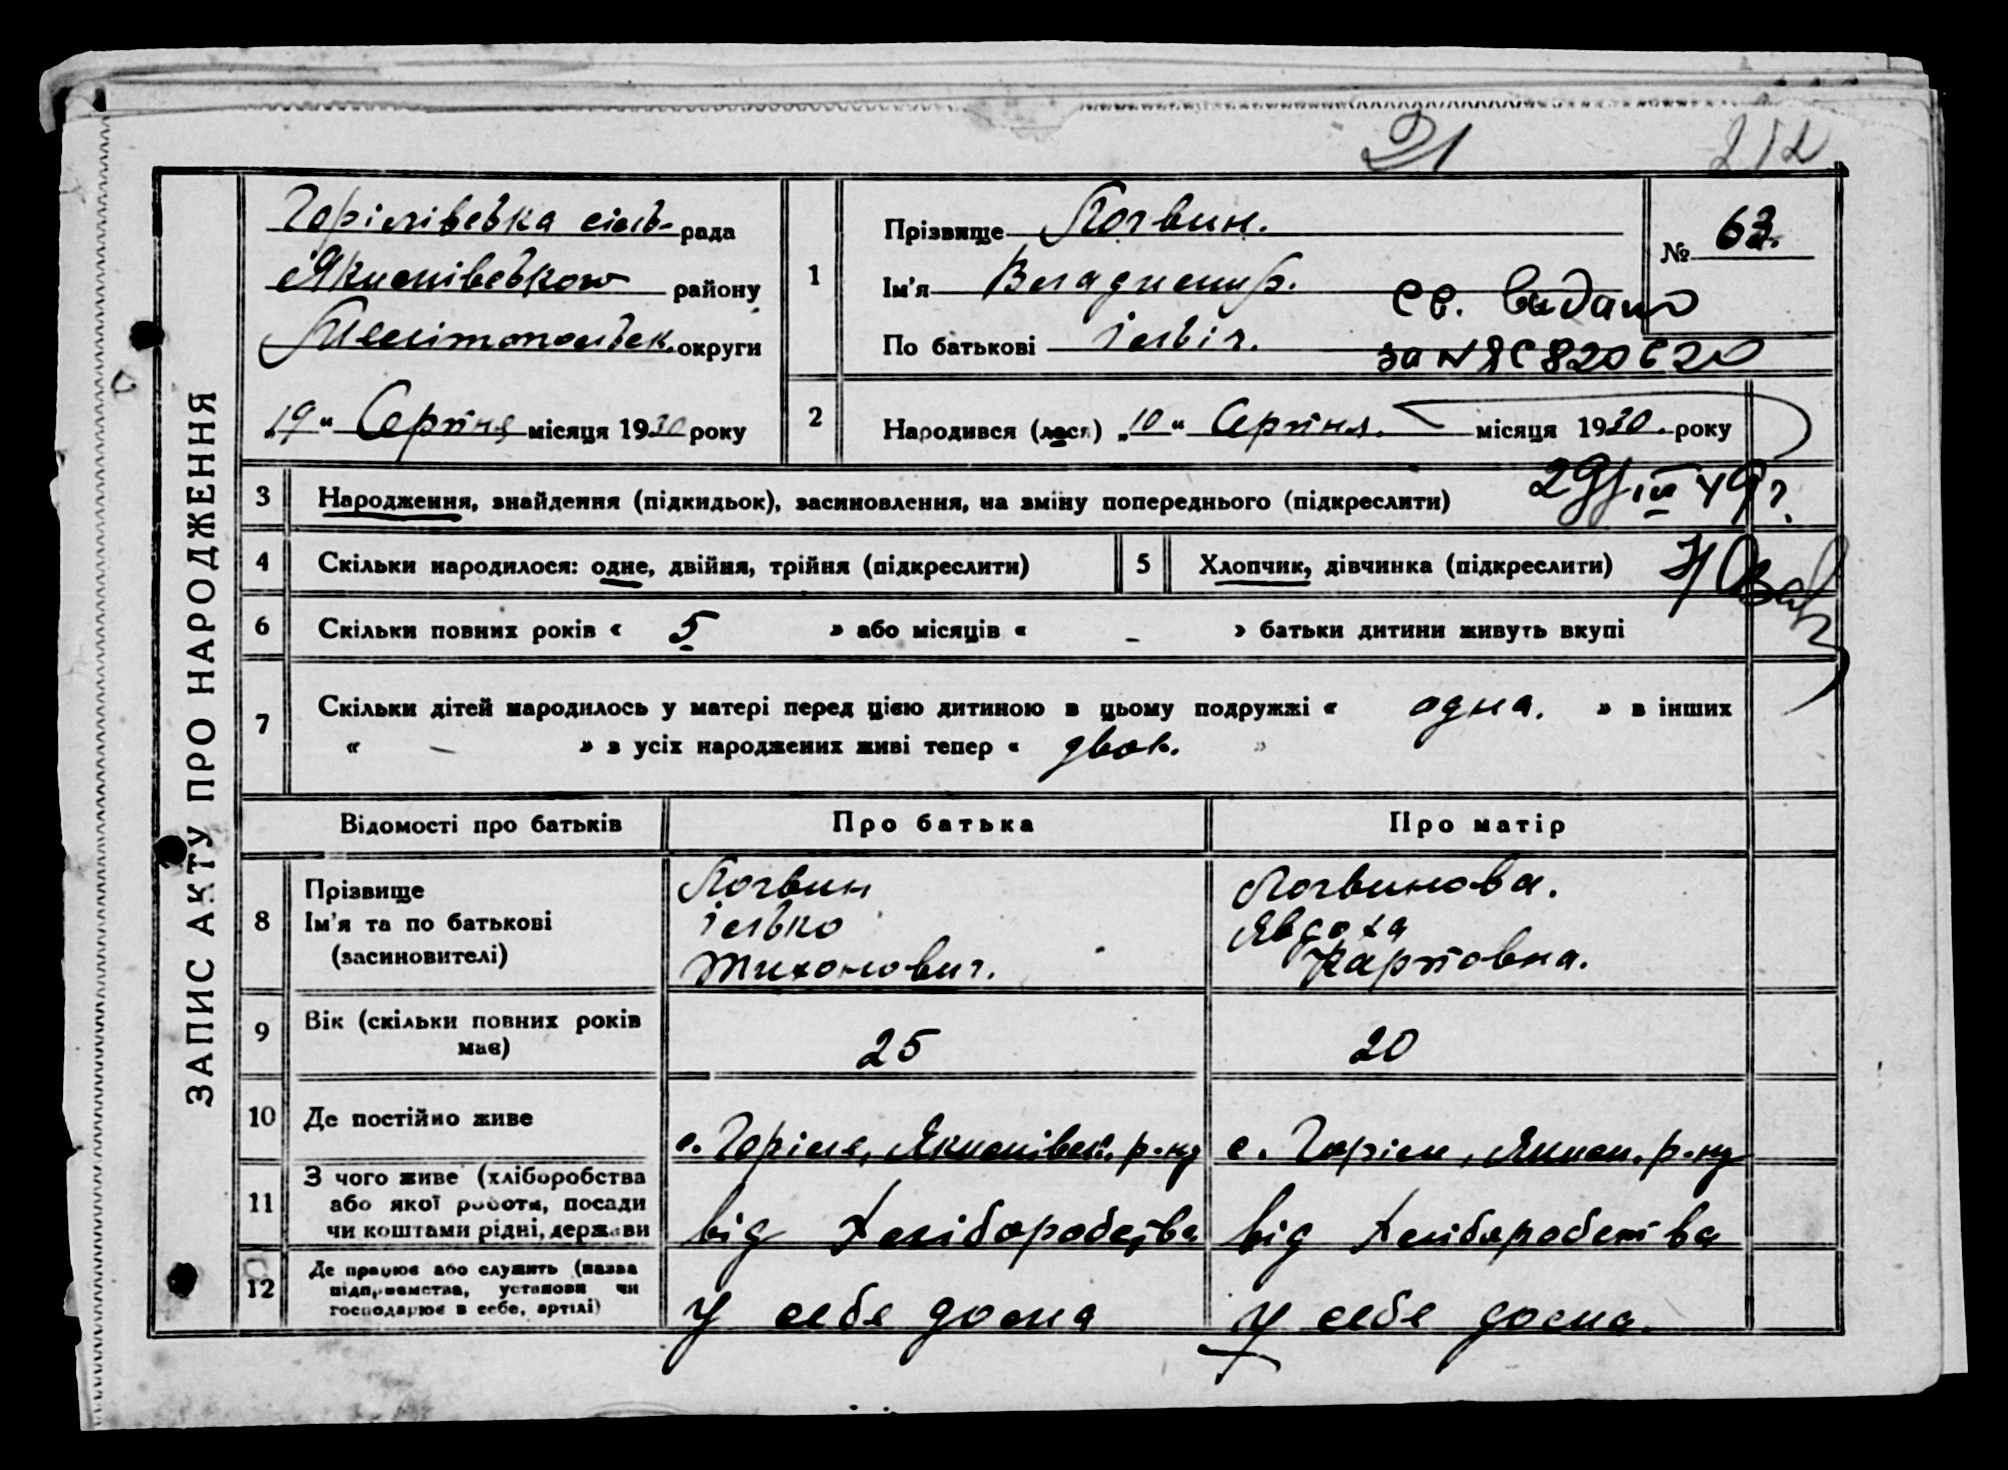 21 212
ЗАПИС АКТУ ПРО НАРОДЖЕННЯ
Горілівська сіль-рада
Якимівськоѡ району
Мелітопольськ. округи
„19“ Серпня місяця 1930 року
1
Прізвище Логвин.
Ім'я Владимир.
По батькові ільвіч.
№ 63.
св. видано
за № ЯС 820620
2
Народився (лася) „10“ Серпня. місяця 1930. року
29/III 49 г.
3 Народження, знайдення (підкидьок), засиновлення, на зміну попереднього (підкреслити)
4 Скільки народилося: одне, двійня, трійня (підкреслити)
5 Хлопчик, дівчинка (підкреслити)
6 Скільки повних років « 5 » або місяців « - » батьки дитини живуть вкупі
7 Скільки дітей народилось у матері перед цією дитиною в цьому подружжі « одна. » в інших
« - » з усіх народжених живі тепер « двох. »
Відомості про батьків Про батька Про матір
8
Прізвище
Ім'я та по батькові
(засиновителі)
Логвин
ілько
Тихонович.
Логвинова.
Явдоха
Карповна.
9 Вік (скільки повних років
має)
25
20
10 Де постійно живе
с. Горіле, Якимівськ. р-ну
с. Горіле, Яким. р-ну
11
З чого живе (хліборобства
або якої роботи, посади
чи коштами рідні, держави
від Хліборобства
від Хліборобства
12
Де працює або служить (назва
підприємства, установи чи
господарює в себе, артілі)
У себе дома
У себе дома.